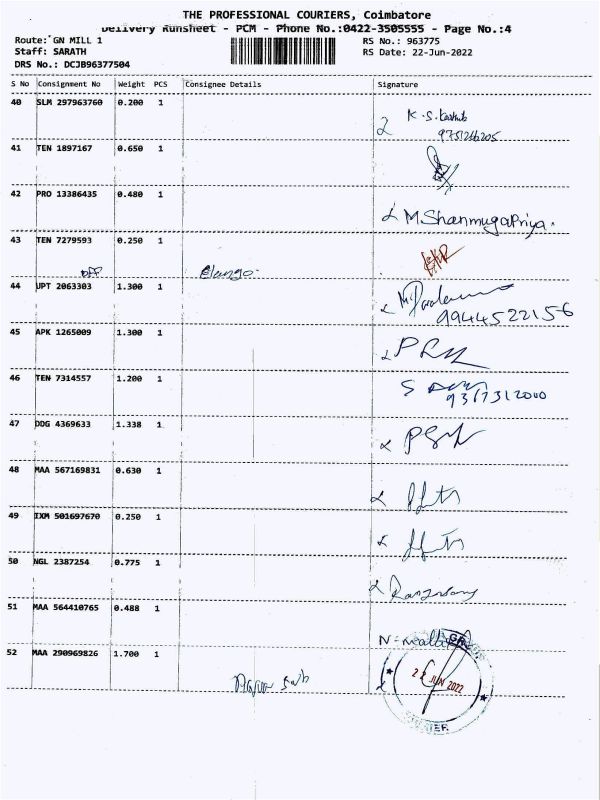 THE PROFESSIONAL COURIERS, Coimbatore
Delivery Runsheet - PCM - Phone No.:0422-3505555 - Page No.:4
Route: GN MILL 1 RS No.: 963775
Staff: SARATH RS Date: 22-Jun-2022
DRS No.: DCJB96377504
S No Consignment No Weight PCS Consignee Details Signature
40 SLM 297963760 0.200 1
K.S.
41 TEN 1897167 0.650 1
42 PRO 13386435 0.480 1
M Shanmugapriya.
43 TEN 7279593 0.250 1
Elango.
44 UPT 2063303 1.300 1
9944522156
45 APK 1265009 1.300 1
46 TEN 7314557 1.200 1
S
47 DDG 4369633 1.338 1
48 MAA 567169831 0.630 1
49 IXM 501697670 0.250 1
50 NGL 2387254 0.775 1
51 MAA 564410765 0.488 1
52 MAA 290969826 1.700 1
22 JUN 2022